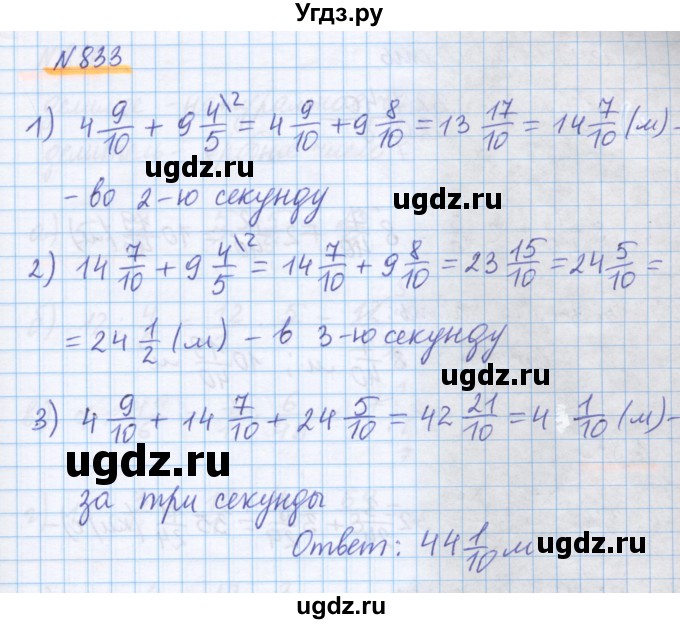 Угдз.ру
№833
1) 4 9/10 + 9 4/5\2 = 4 9/10 + 9 8/10 = 13 17/10 = 14 7/10 (м) -
ugdz.ru ugdz.ru
- во 2-ю секунду
2) 14 7/10 + 9 4/5\2 = 14 7/10 + 9 8/10 = 23 15/10 = 24 5/10 =
= 24 1/2 (м) - в 3-ю секунду
ugdz.ru ugdz.ru
3) 4 9/10 + 14 7/10 + 24 5/10 = 42 21/10 = 4 1/10 (м) -
ugdz.ru ugdz.ru
за три секунды
Ответ: 44 1/10 м
ugdz.ru ugdz.ru
ugdz.ru